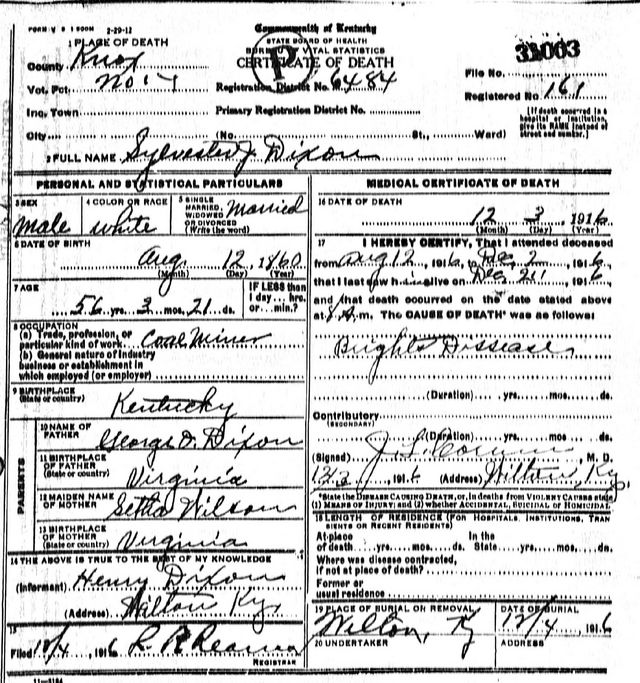 FORM V S 1 500M 2-29-12
Commonwealth of Kentucky
STATE BOARD OF HEALTH
BUREAU OF VITAL STATISTICS
CERTIFICATE OF DEATH
P
1 PLACE OF DEATH
County Knox
Vot. Pct. No 17
Registration District No. 6484
File No. 31003
Registered No. 161
Inc. Town
Primary Registration District No.
[If death occurred in a hospital or institution, give its NAME instead of street and number.]
City (No. St., Ward)
2 FULL NAME Sylvester J. Dixon
PERSONAL AND STATISTICAL PARTICULARS
3 SEX male
4 COLOR OR RACE white
5 SINGLE MARRIED, WIDOWED OR DIVORCED (Write the word) Married
6 DATE OF BIRTH
Aug 12, 1860
(Month) (Day) (Year)
7 AGE
56 yrs. 3 mos. 21 ds.
IF LESS than 1 day... hrs. or... min.?
8 OCCUPATION
(a) Trade, profession, or particular kind of work Coal Miner
(b) General nature of industry business or establishment in which employed (or employer)
9 BIRTHPLACE (State or country) Kentucky
PARENTS
10 NAME OF FATHER George D. Dixon
11 BIRTHPLACE OF FATHER (State or country) Virginia
12 MAIDEN NAME OF MOTHER Setha Wilson
13 BIRTHPLACE OF MOTHER (State or country) Virginia
14 THE ABOVE IS TRUE TO THE BEST OF MY KNOWLEDGE
(Informant) Henry Dixon
(Address) Wilton Ky.
15
Filed 12/4, 1916 R R
REGISTRAR
11-3184
MEDICAL CERTIFICATE OF DEATH
16 DATE OF DEATH
12 3, 1916
(Month) (Day) (Year)
17 I HEREBY CERTIFY, That I attended deceased
from Aug 12, 1916, to Dec 2, 1916,
that I last saw h alive on Dec 2, 1916,
and that death occurred on the date stated above
at m. The CAUSE OF DEATH* was as follows:
Brights Dissease
(Duration) yrs. mos. ds.
Contributory
(SECONDARY)
(Duration) yrs. mos. ds.
(Signed) J. S. M. D.
12/3, 1916 (Address) Wilton Ky.
*State the DISEASE CAUSING DEATH, or, in deaths from VIOLENT CAUSES state (1) MEANS OF INJURY; and (2) whether ACCIDENTAL, SUICIDAL OR HOMICIDAL
18 LENGTH OF RESIDENCE (FOR HOSPITALS, INSTITUTIONS, TRANSIENTS OR RECENT RESIDENTS)
At place of death yrs. mos. ds. In the State yrs. mos. ds.
Where was disease contracted, if not at place of death?
Former or usual residence
19 PLACE OF BURIAL OR REMOVAL
Wilton, Ky
DATE OF BURIAL
12/4, 1916
20 UNDERTAKER
ADDRESS